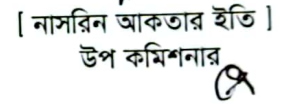 [ নাসরিন আকতার ইতি ]
উপ কমিশনার